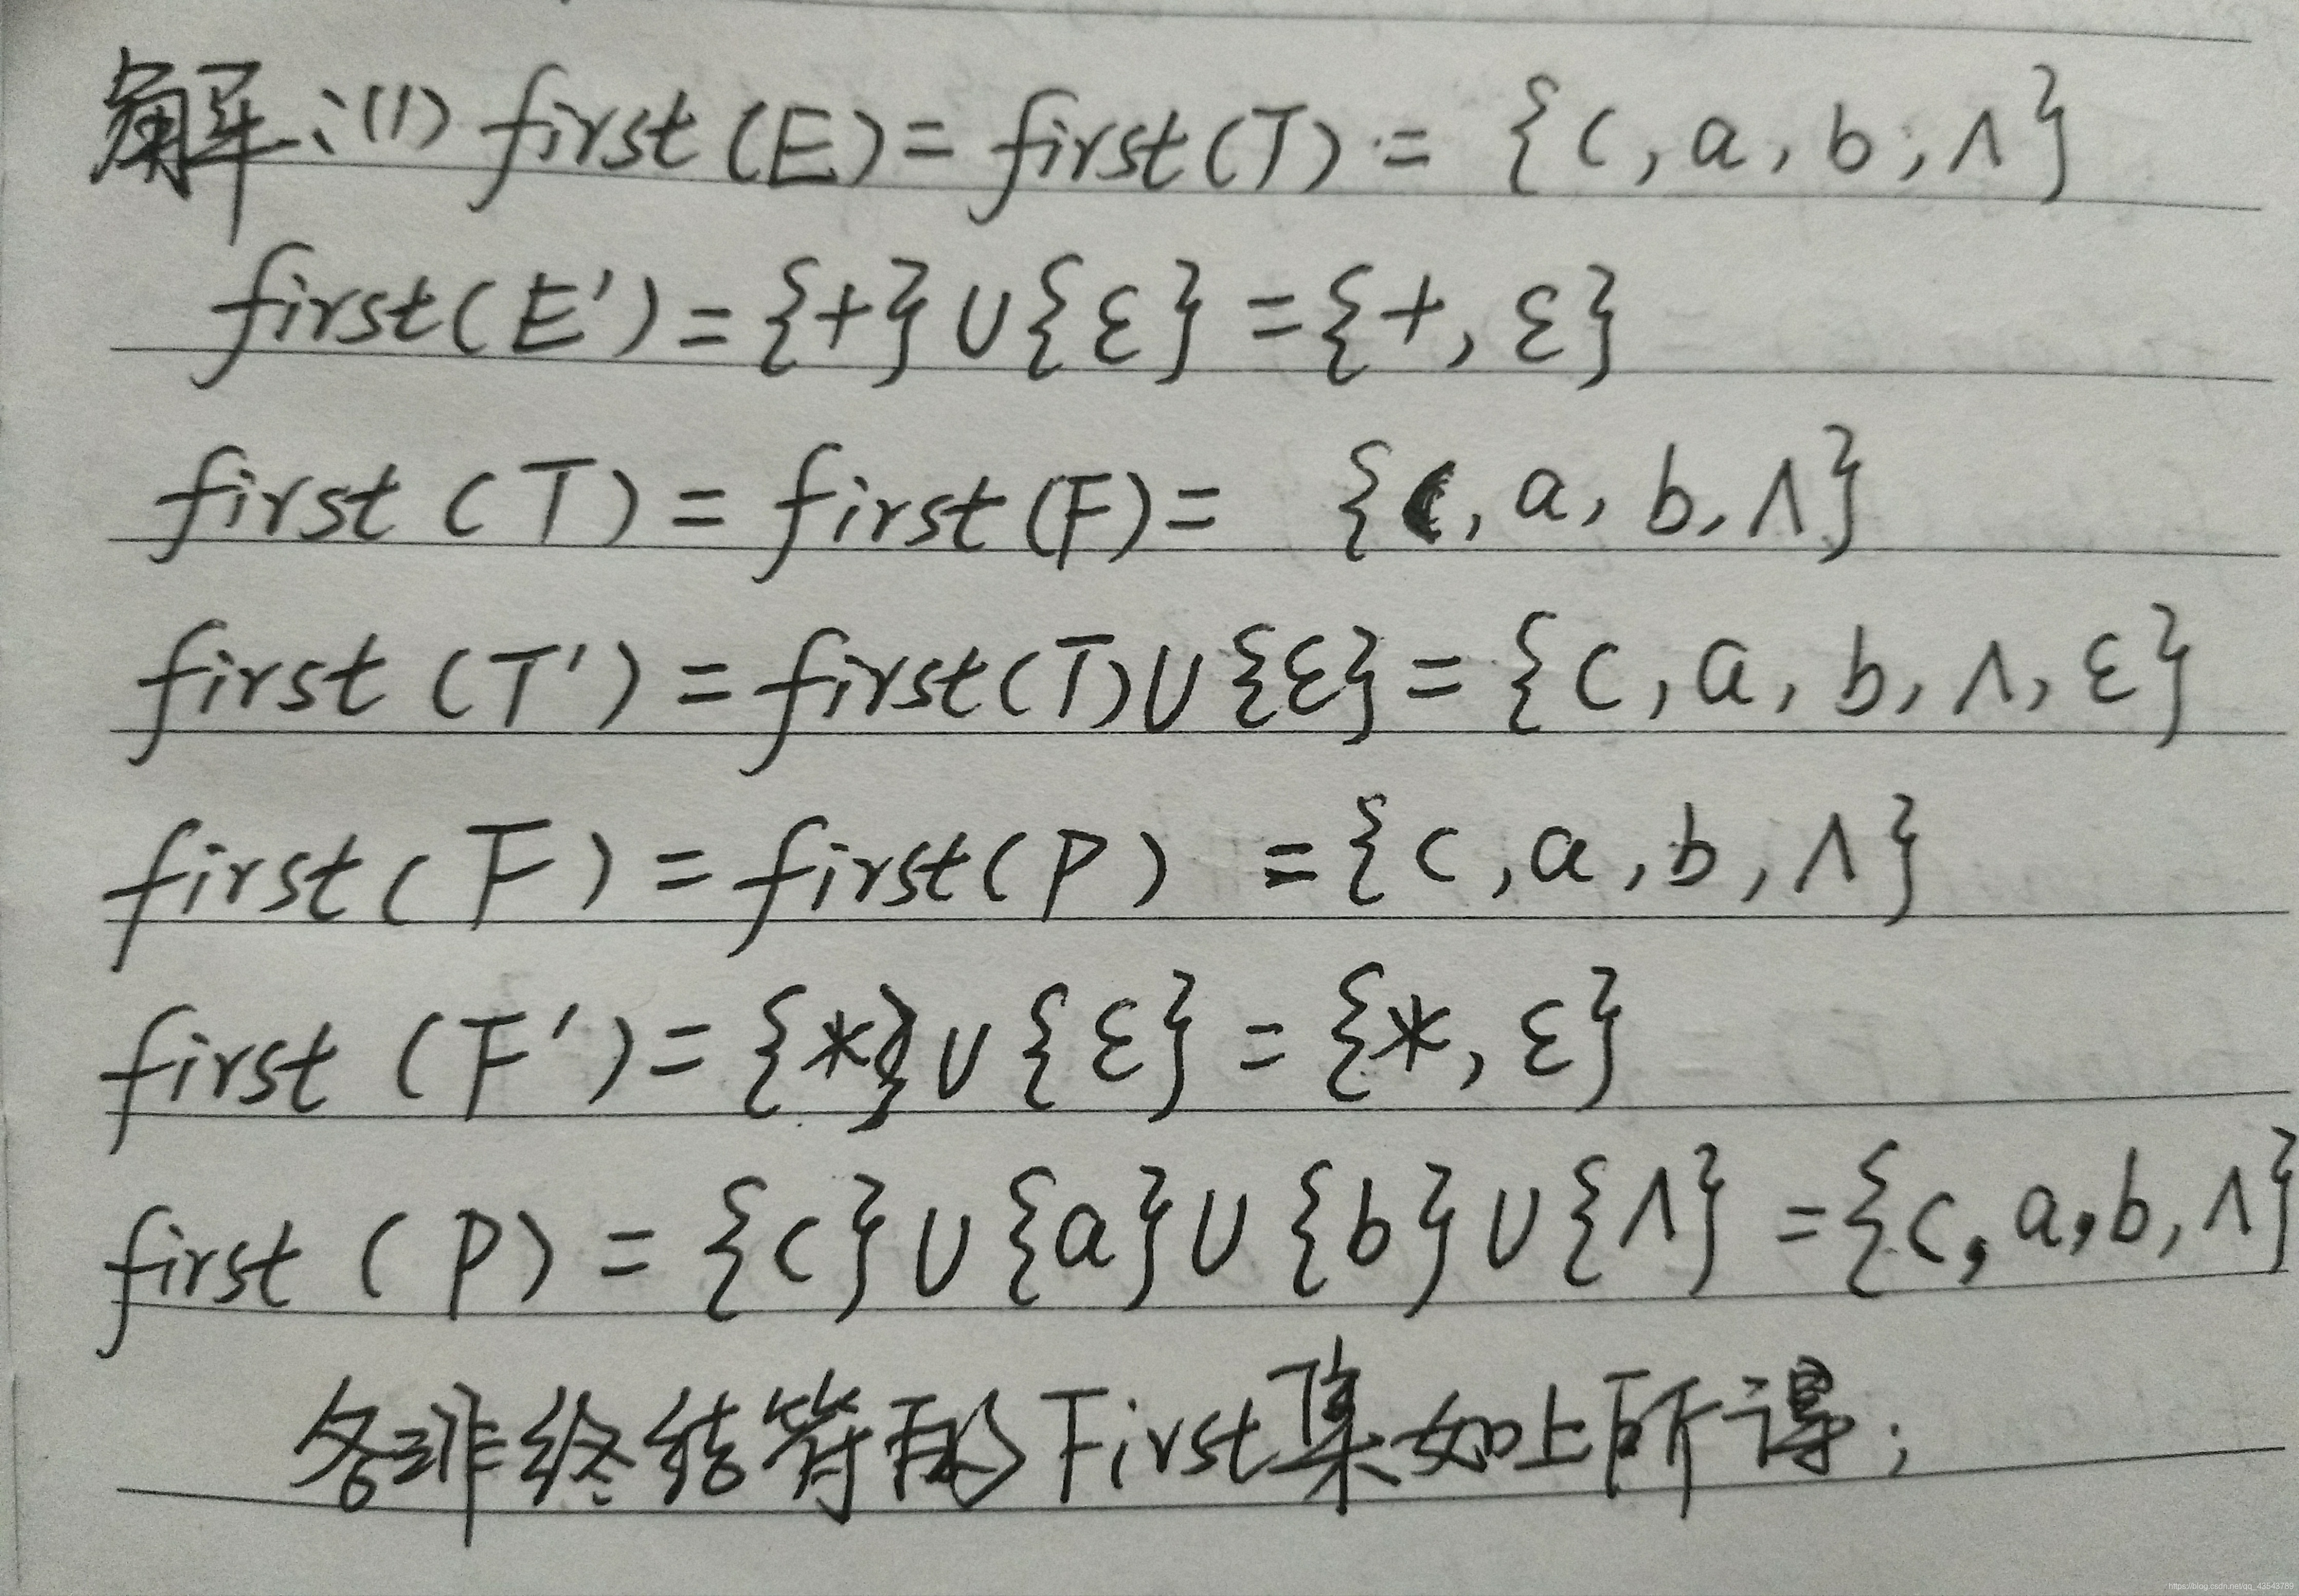 解:(1) first(E) = first(T) = {(, a, b, ∧}
first(E') = {+}∪{ε} = {+, ε}
first(T) = first(F) = {(, a, b, ∧}
first(T') = first(T)∪{ε} = {(, a, b, ∧, ε}
first(F) = first(P) = {(, a, b, ∧}
first(F') = {*}∪{ε} = {*, ε}
first(P) = {(}∪{a}∪{b}∪{∧} = {(, a, b, ∧}
各非终结符的First集如上所得;
https://blog.csdn.net/qq_43543789